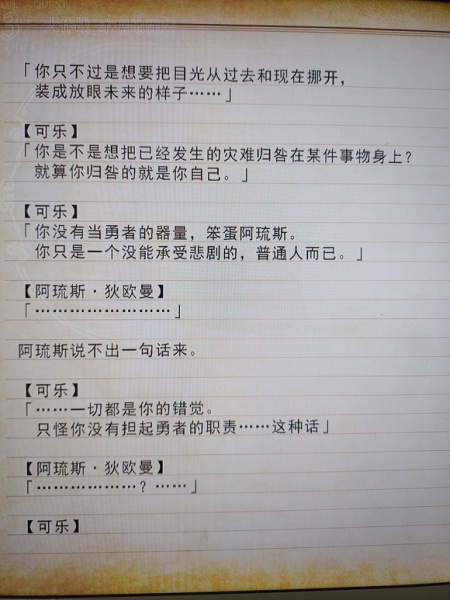 「你只不过是想要把目光从过去和现在挪开，
装成放眼未来的样子……」
【可乐】
「你是不是想把已经发生的灾难归咎在某件事物身上？
就算你归咎的就是你自己。」
【可乐】
「你没有当勇者的器量，笨蛋阿琉斯。
你只是一个没能承受悲剧的，普通人而已。」
【阿琉斯·狄欧曼】
「……………………」
阿琉斯说不出一句话来。
【可乐】
「……一切都是你的错觉。
只怪你没有担起勇者的职责……这种话」
【阿琉斯·狄欧曼】
「………………？……」
【可乐】